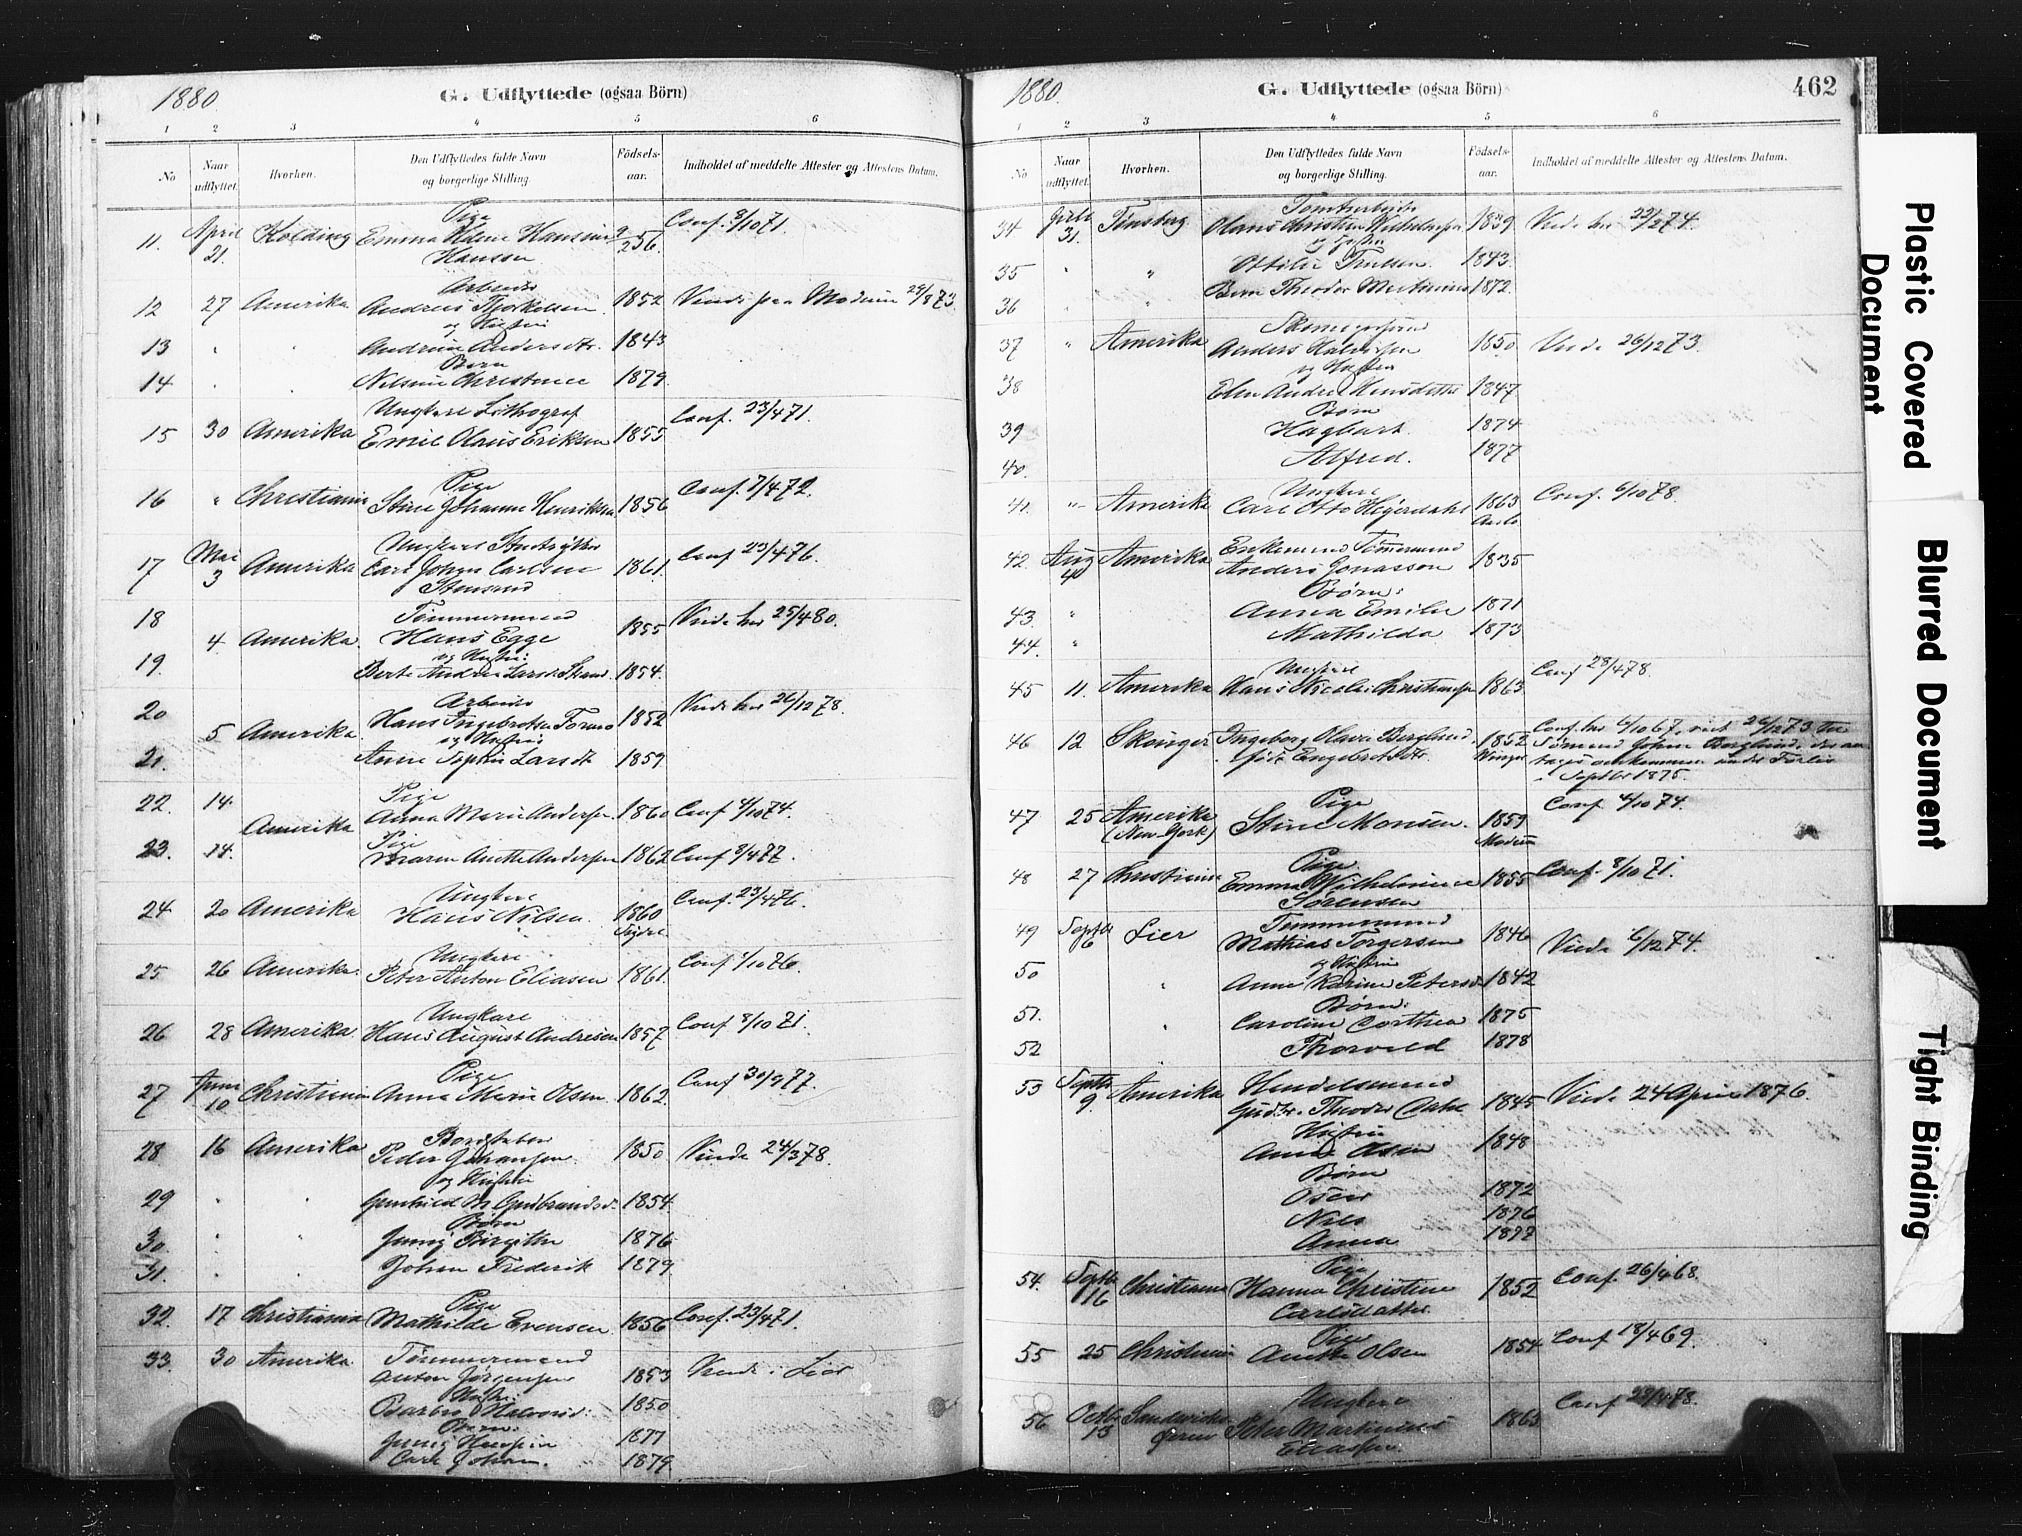 1880.
G. Udflyttede (ogsaa Börn)
1 2 3 4 5 6
No
Naar udflyttet.
Hvorhen.
Den Udflyttedes fulde Navn og borgerlige Stilling.
Födsels-aar.
Indholdet af meddelte Attester og Attestens Datum.
Pige
11. April 21. Kolding Emma Helene Hansine 9/2 56. Conf. 8/10 71.
Hansen
Arbeider
12 27 Amerika Andreas Thorkelsen 1852 Viede paa Modum 29/8 73.
og Hustru
13 " " Andrine Andersdtr. 1843
Barn
14 " " Nilsine Christence 1879.
Ungkarl Lithograf
15 30 Amerika Emil Olaus Eriksen 1855 Conf. 23/4 71.
Pige
16 " Christiania Stine Johanne Henriksen 1856 Conf. 7/4 72.
Ungkarl
17 Mai 3 Amerika Carl Johan Carlsen 1861. Conf 23/4 76.
Stensrud
18 Tömmermand
4 Amerika. Hans Egge 1855 Viede her 25/4 80.
og Hustru:
19. Berte Andrea Larsd. Strand. 1854.
20 Arbeider
5 Amerika Hans Ingebretsen Formo 1852 Viede her 26/12 78.
og Hustru
21. Anne Sophie Larsdt 1859
22. 14. Pige
Amerika Anna Marie Andersen. 1860 Conf 4/10 74.
23. 14. Pige
Maren Anette Andersen 1862 Conf 8/4 77.
Ungkarl
24 20 Amerika Hans Nilsen. 1860 Conf. 23/4 76.
Sigdal
Ungkarl
25 26 Amerika. Peter Anton Eliasen 1861. Conf 1/10 76.
Ungkarl
26 28 Amerika. Hans August Andresen 1857 Conf 8/10 71.
Pige
27 Juni 10 Christiania Anna Marie Olsen. 1862. Conf 30/9 77.
28 16 Amerika Peder Johansen 1850. Viede 24/3 78.
og Hustru
29 " " Gunhild M. Gudbrandsd. 1854.
Børn
30. " " Jenny Birgitte 1876
31. " " Johan Frederik 1879.
Pige
32. 17 Christiania Mathilde Evensen 1856 Conf. 23/4 71.
33. 30 Amerika Tömmermand
Anton Jörgensen 1853 Viede i Lier
Hustru
Barbro Halvorsd: 1850
Børn:
Jenny 1877
Carl Johan. 1879.
1880.
G. Udflyttede (ogsaa Börn)
462
1 2 3 4 5 6
No
Naar udflyttet.
Hvorhen.
Den Udflyttedes fulde Navn og borgerlige Stilling.
Födsels-aar.
Indholdet af meddelte Attester og Attestens Datum.
34 Juli 31. Tönsberg Olaus Christian Wilhelmsen 1839 Viede her 22/2 74.
og Hustru
35 " " Ottilie Trulsen. 1843.
36 " Barn Theodor Martinius 1872.
37 " Amerika Anders Halvorsen 1850. Viede 26/12 73.
og Hustru
38 Elen Andrea Hansdatter 1847
Børn
39 Hagbart. 1874
40. Alfred. 1877
Ungkarl
41. " Amerika Carl Otto Heyerdahl 1863 Conf. 6/10 78.
Enkemand Tömmermand
42 Aug 4 Amerika Anders Jonasson 1835
Børn:
43. " Anna Emilie 1871
44. " Mathilda 1873
Ungkarl
45 11. Amerika Hans Nicolai Christiansen 1863 Conf 28/4 78.
46 12 Skouger Ingeborg Olava Berglund. 1852 Conf. her 6/10 67, viet 26/12 73 til
føde Engebretsdtr. Sømand Johan Berglund, der an
tages omkommen under Forlis
i Septbr 1875.
Pige
47 25 Amerika Stine Monsen. 1859 Conf. 4/10 74.
(New-York) Modum
Pige
48 27 Christiania Emma Wilhelmine 1855 Conf. 8/10 71.
Sørensen
49 Septbr 6 Lier Tømmermand
Mathias Torgersen 1846 Viede 6/12 74.
og Hustru
50 " Anne Karine Petersd 1842
Børn:
51. " Caroline Dorthea 1875
52 " Thorvald 1878
53 Septbr 9. Amerika Handelsmand
Gudbr. Theodor 1845 Viede 24 April 1876.
Hustru
Anne Olsen 1848
Børn
Oscar 1872
Nils 1876
Anna 1877
Pige
54. Septbr 16 Christiania Hanna Christine 1852 Conf. 26/4 68.
Carlsdatter
Pige
55 25 Christiania Anette Olsen 1854 Conf 18/4 69.
Ungkarl
56 Octbr 13 Sandwichs- Peter Martinius 1863 Conf 28/4 78.
øerne Eliasen.
Plastic Covered Document
Blurred Document
Tight Binding